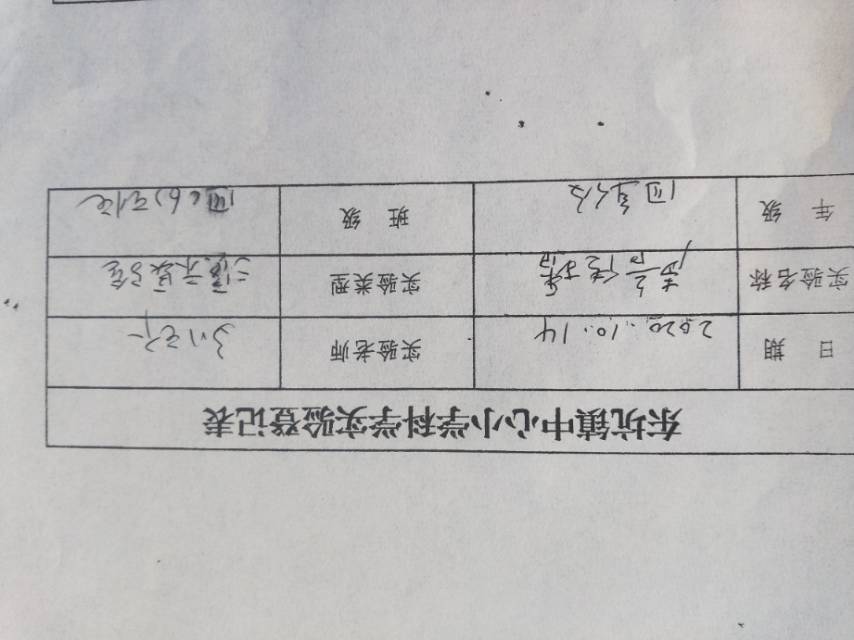 东坑镇中心小学科学实验登记表
日 期 2020.10.14 实验老师
实验名称 声音传播 实验类型 演示实验
年 级 四年级 班 级 四(6)